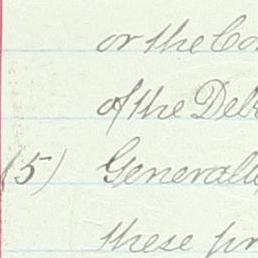 or the Co
of the Deb
(5) Generally
these pr